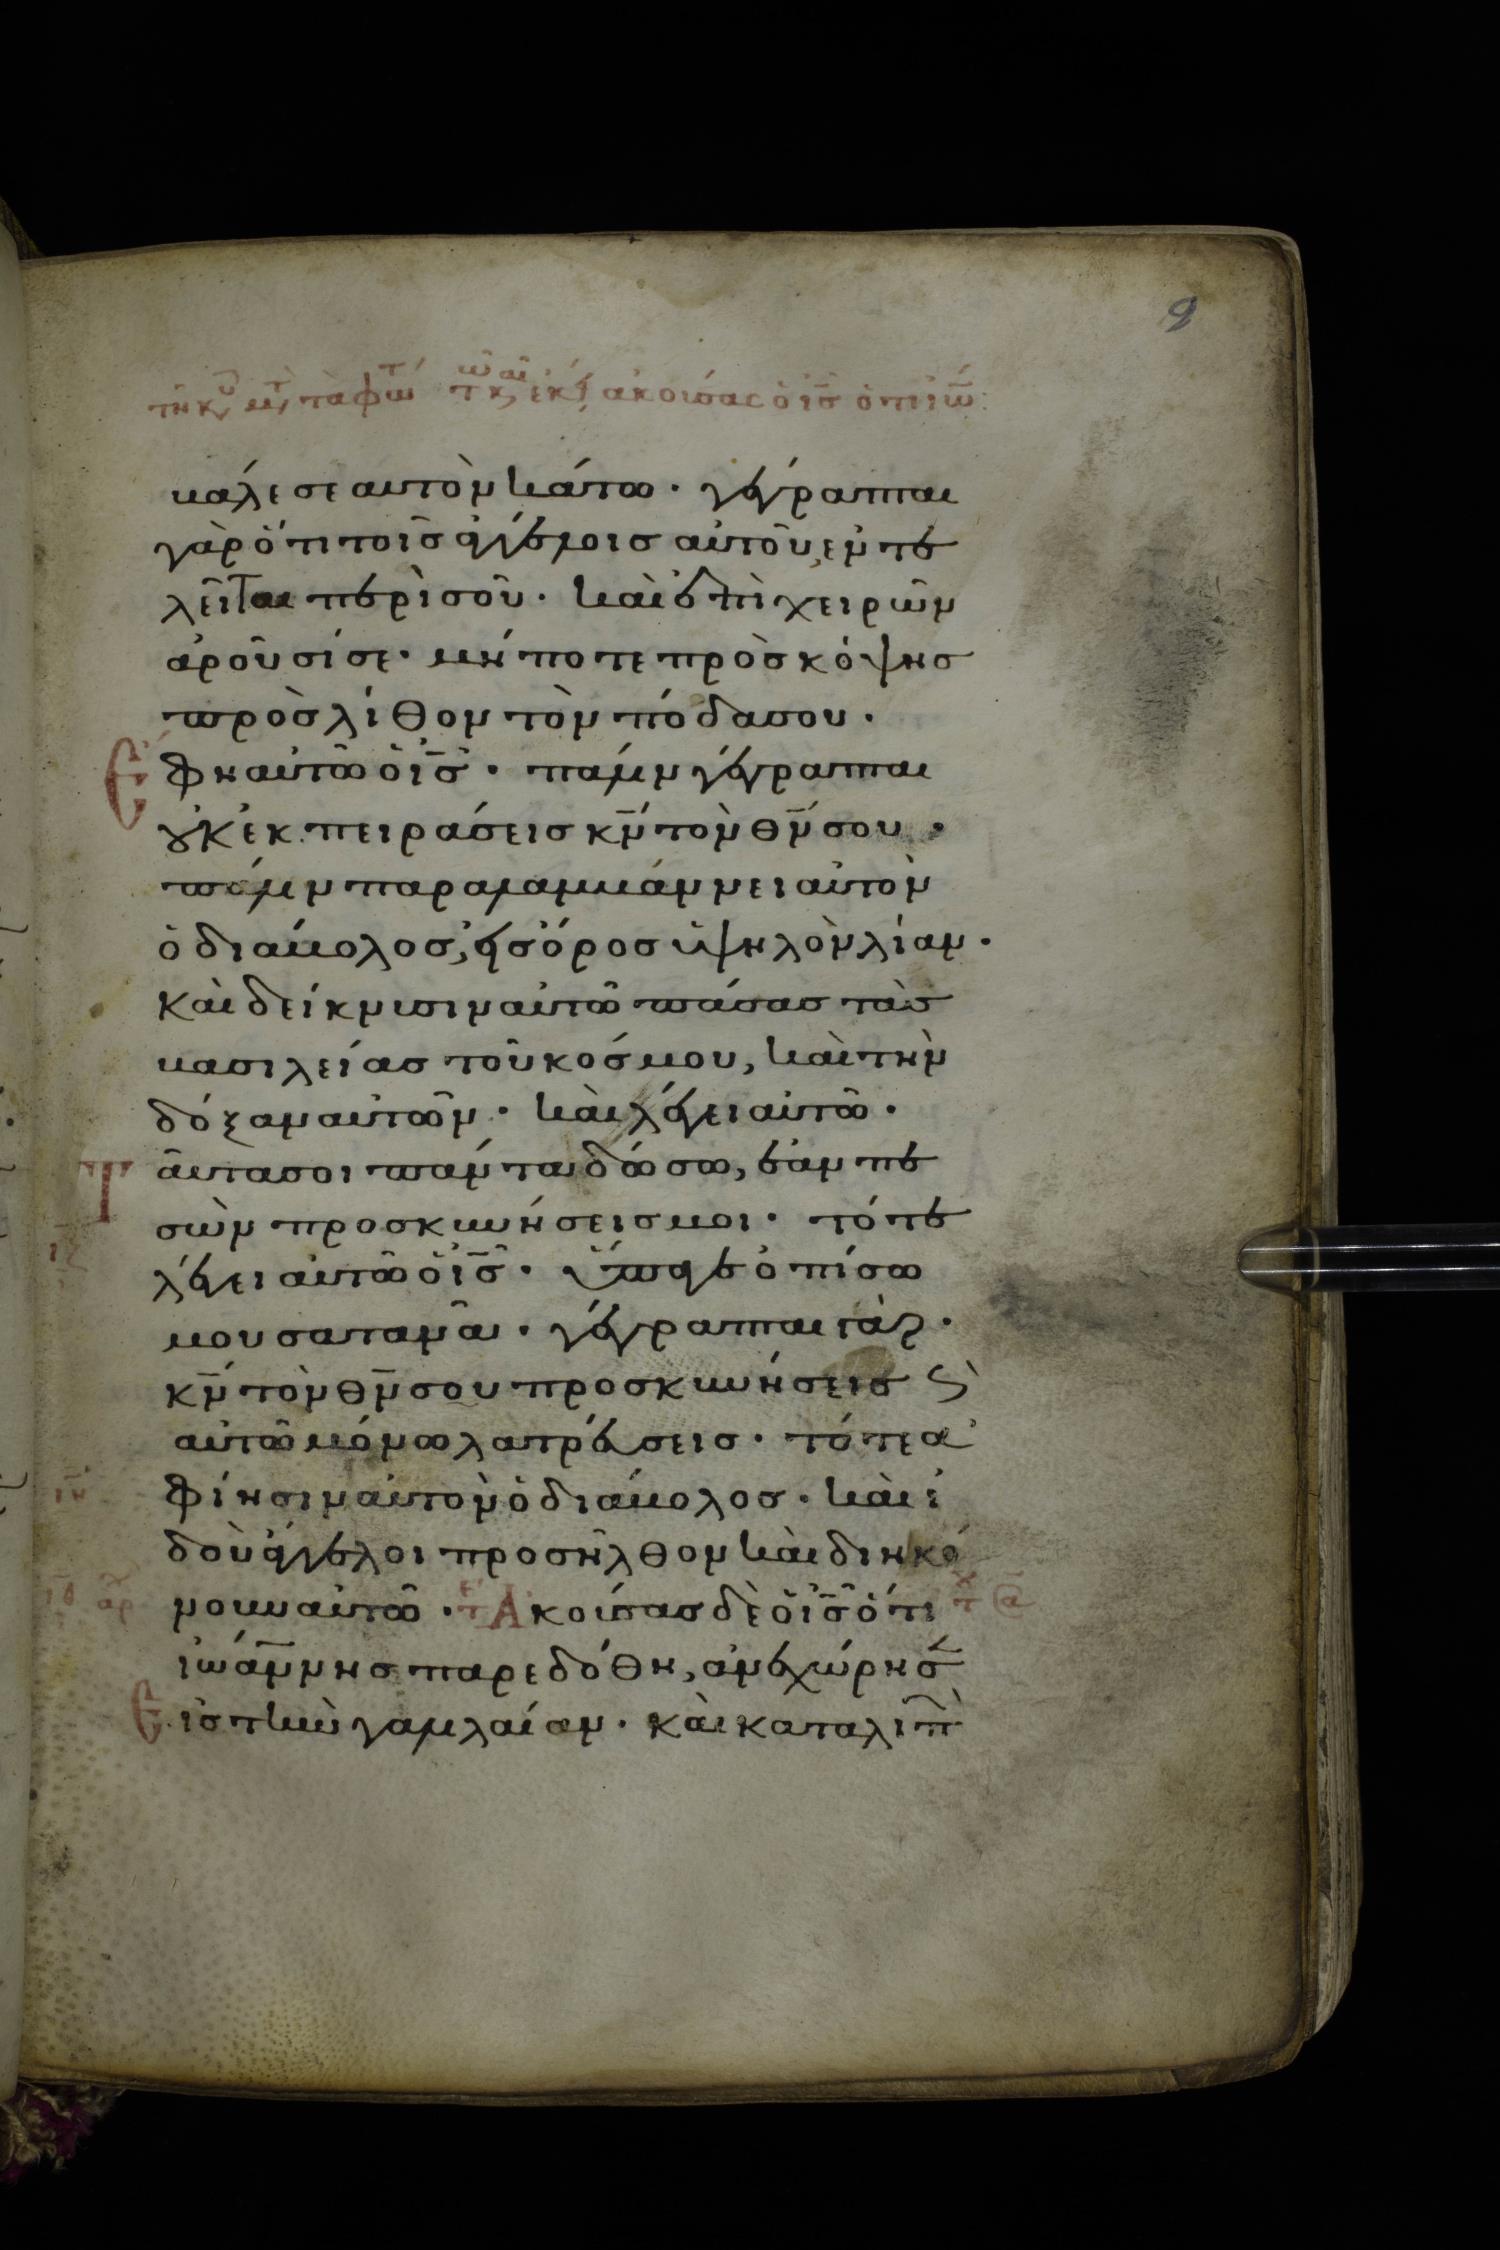 9
τῆ κυ μτ τὰ φῶτ τ κ ἐκ ἀκούσας ὁ ἰς ὅτι ἰω
βάλε σεαυτὸν κάτω · γέγραπται
γὰρ ὅτι τοῖς ἀγγέλοις αὐτοῦ ἐντε
λεῖται περὶ σοῦ · καὶ ἐπὶ χειρῶν
ἀροῦσί σε · μήποτε προσκόψης
πρὸς λίθον τὸν πόδα σου ·
Ἔφη αὐτῶ ὁ ἰς · πάλιν γέγραπται
οὐκ ἐκπειράσεις κν τὸν θν σου ·
πάλιν παραλαμβάνει αὐτὸν
ὁ διάβολος, εἰς ὄρος ὑψηλὸν λίαν ·
καὶ δείκνυσιν αὐτῶ πάσας τὰς
βασιλείας τοῦ κόσμου, καὶ τὴν
δόξαν αὐτῶν · καὶ λέγει αὐτῶ ·
Ταῦτά σοι πάντα δώσω, ἐὰν πε
σὼν προσκυνήσεις μοι · τότε
λέγει αὐτῶ ὁ ἰς · ὕπαγε ὀπίσω
μου σατανᾶ · γέγραπται γάρ ·
κν τὸν θν σου προσκυνήσεις ϗ
αὐτῶ μόνω λατρεύσεις · τότε ἀ
φίησιν αὐτὸν ὁ διάβολος · καὶ ἰ
δοὺ ἄγγελοι προσῆλθον καὶ διηκό
νουν αὐτῶ · τε Ἀκούσας δὲ ὁ ἰς ὅτι
ἰωάννης παρεδόθη, ἀνεχώρησεν
Εἰς τὴν γαλιλαίαν · καὶ καταλιπὼν